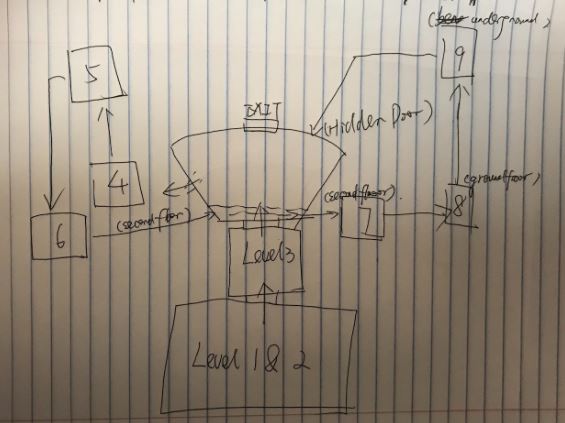 underground)
5
9
EXIT
(Hidden Door)
4
(ground floor)
(second floor)
(second floor)
6
7
8
Level 3
Level 1 & 2